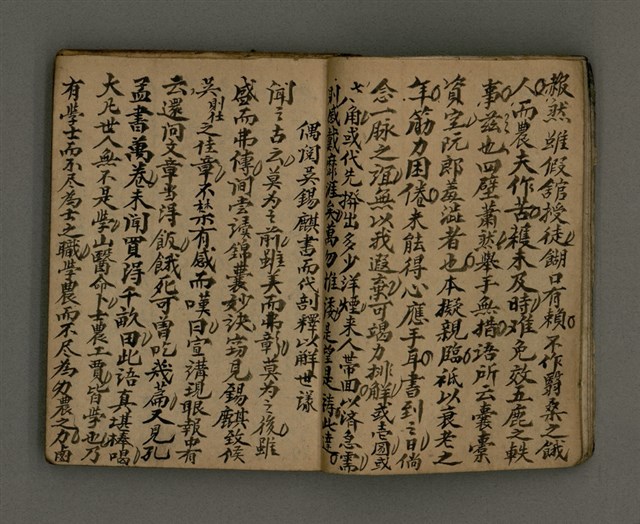 報然雖假館授徒餬口有賴不作翳桑之餓
人而農夫作苦穫未及時难免效五鹿之軼
事茲也四壁蕭然舉手無措語所云囊橐
資空阮郎羞澁者也本擬親臨祗以衰老之
年筋力困倦未能得心應手耳書到之日倘
念一脉之誼無以我遐棄可竭力排解或壱國或
七八角或代先擠出多少洋煙來人帶回以濟急需
則感戴
偶閱吳錫麒書而代剖釋以解世謀
聞之古云莫為之前雖美而弗彰莫為之後雖
盛而弗傳間嘗讀錦囊妙訣窃見錫麒致候
吳社之佳章不禁有感而嘆曰宣溝現眼報中有
云還问文章当得飯餓死可曾吃幾篇又見孔
孟書萬卷未聞買得千畝田此語真堪棒喝
大凡世人無不是學山醫命卜士農工賈皆學也乃
有學士而不尽為士之職學農而不尽為農之力